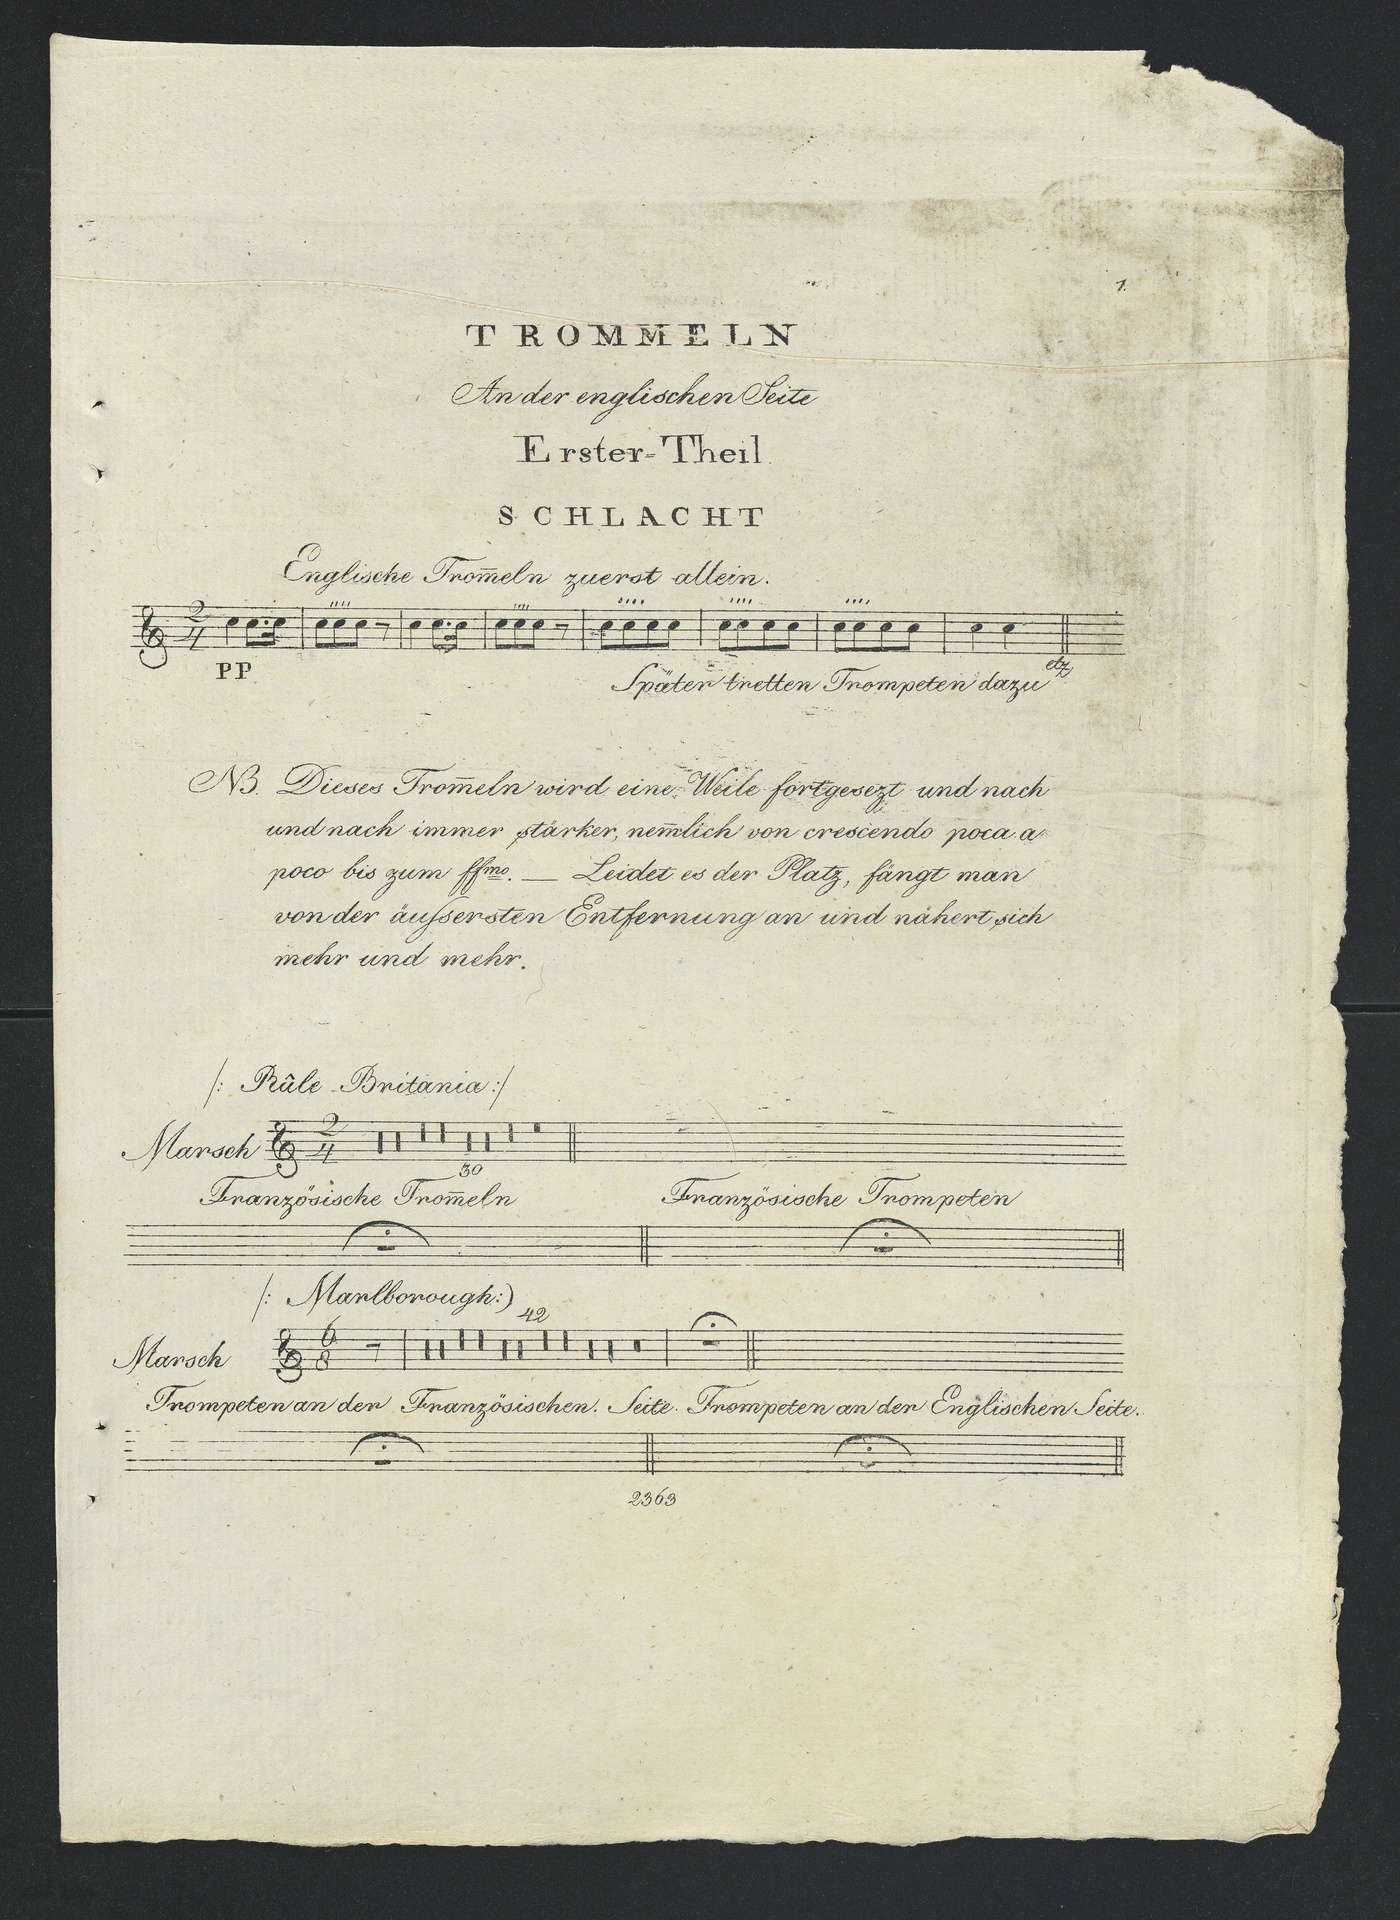 1.
TROMMELN
An der englischen Seite
Erster-Theil
SCHLACHT
Englische Trom̅eln zuerst allein.
2/4
PP
etz
Später tretten Trompeten dazu
NB. Dieses Trom̅eln wird eine Weile fortgesezt und nach
und nach immer stärker, nem̅lich von crescendo poca a
poco bis zum ffmo. — Leidet es der Platz, fängt man
von der äuſsersten Entfernung an und nähert sich
mehr und mehr.
/: Rûle Britania :/
Marsch 2/4
30
Französische Trom̅eln Französische Trompeten
/: Marlborough:)
42
Marsch 6/8
Trompeten an der Französischen. Seite. Trompeten an der Englischen Seite.
2363